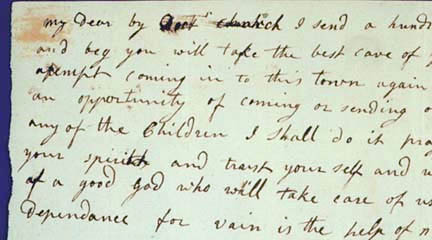 my Dear by Doctr Church I send a hundr
and beg you will take the best care of y
atempt coming in to this town again
an opportunity of coming or sending o
any of the Children I shall do it pra
your spirits and trust your self and u
of a good god who will take care of us
Dependance for vain is the help of m